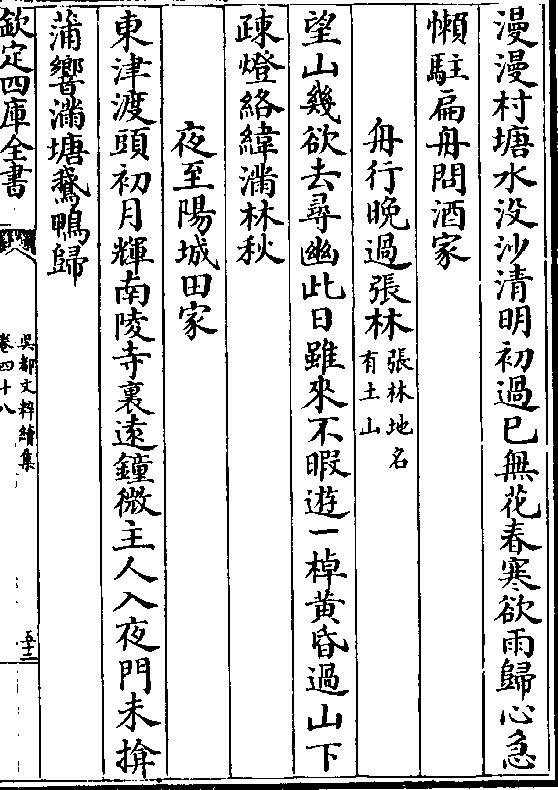 漫漫村塘水没沙清明初過已無花春寒欲雨歸心急
懶駐扁舟問酒家
舟行晚過張林張林地名有土山
望山幾欲去尋幽此日雖來不暇遊一棹黄昏過山下
疎燈絡緯滿林秋
夜至陽城田家
東津渡頭初月輝南陵寺裏遠鐘微主人入夜門未揜
蒲響滿塘鵞鴨歸
欽定四庫全書
吳都文粹續集
卷四十八
五十二